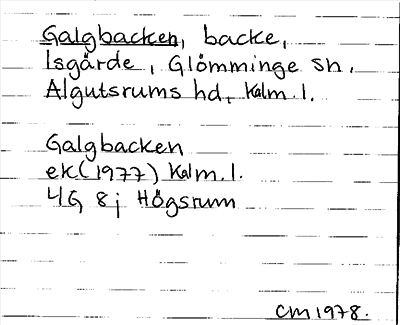 Galgbacken, backe,
Isgärde, Glömminge sn,
Algutsrums hd, Kalm. l.
Galgbacken
ek (1977) Kalm. l.
4G 8j Högsrum
CM 1978.